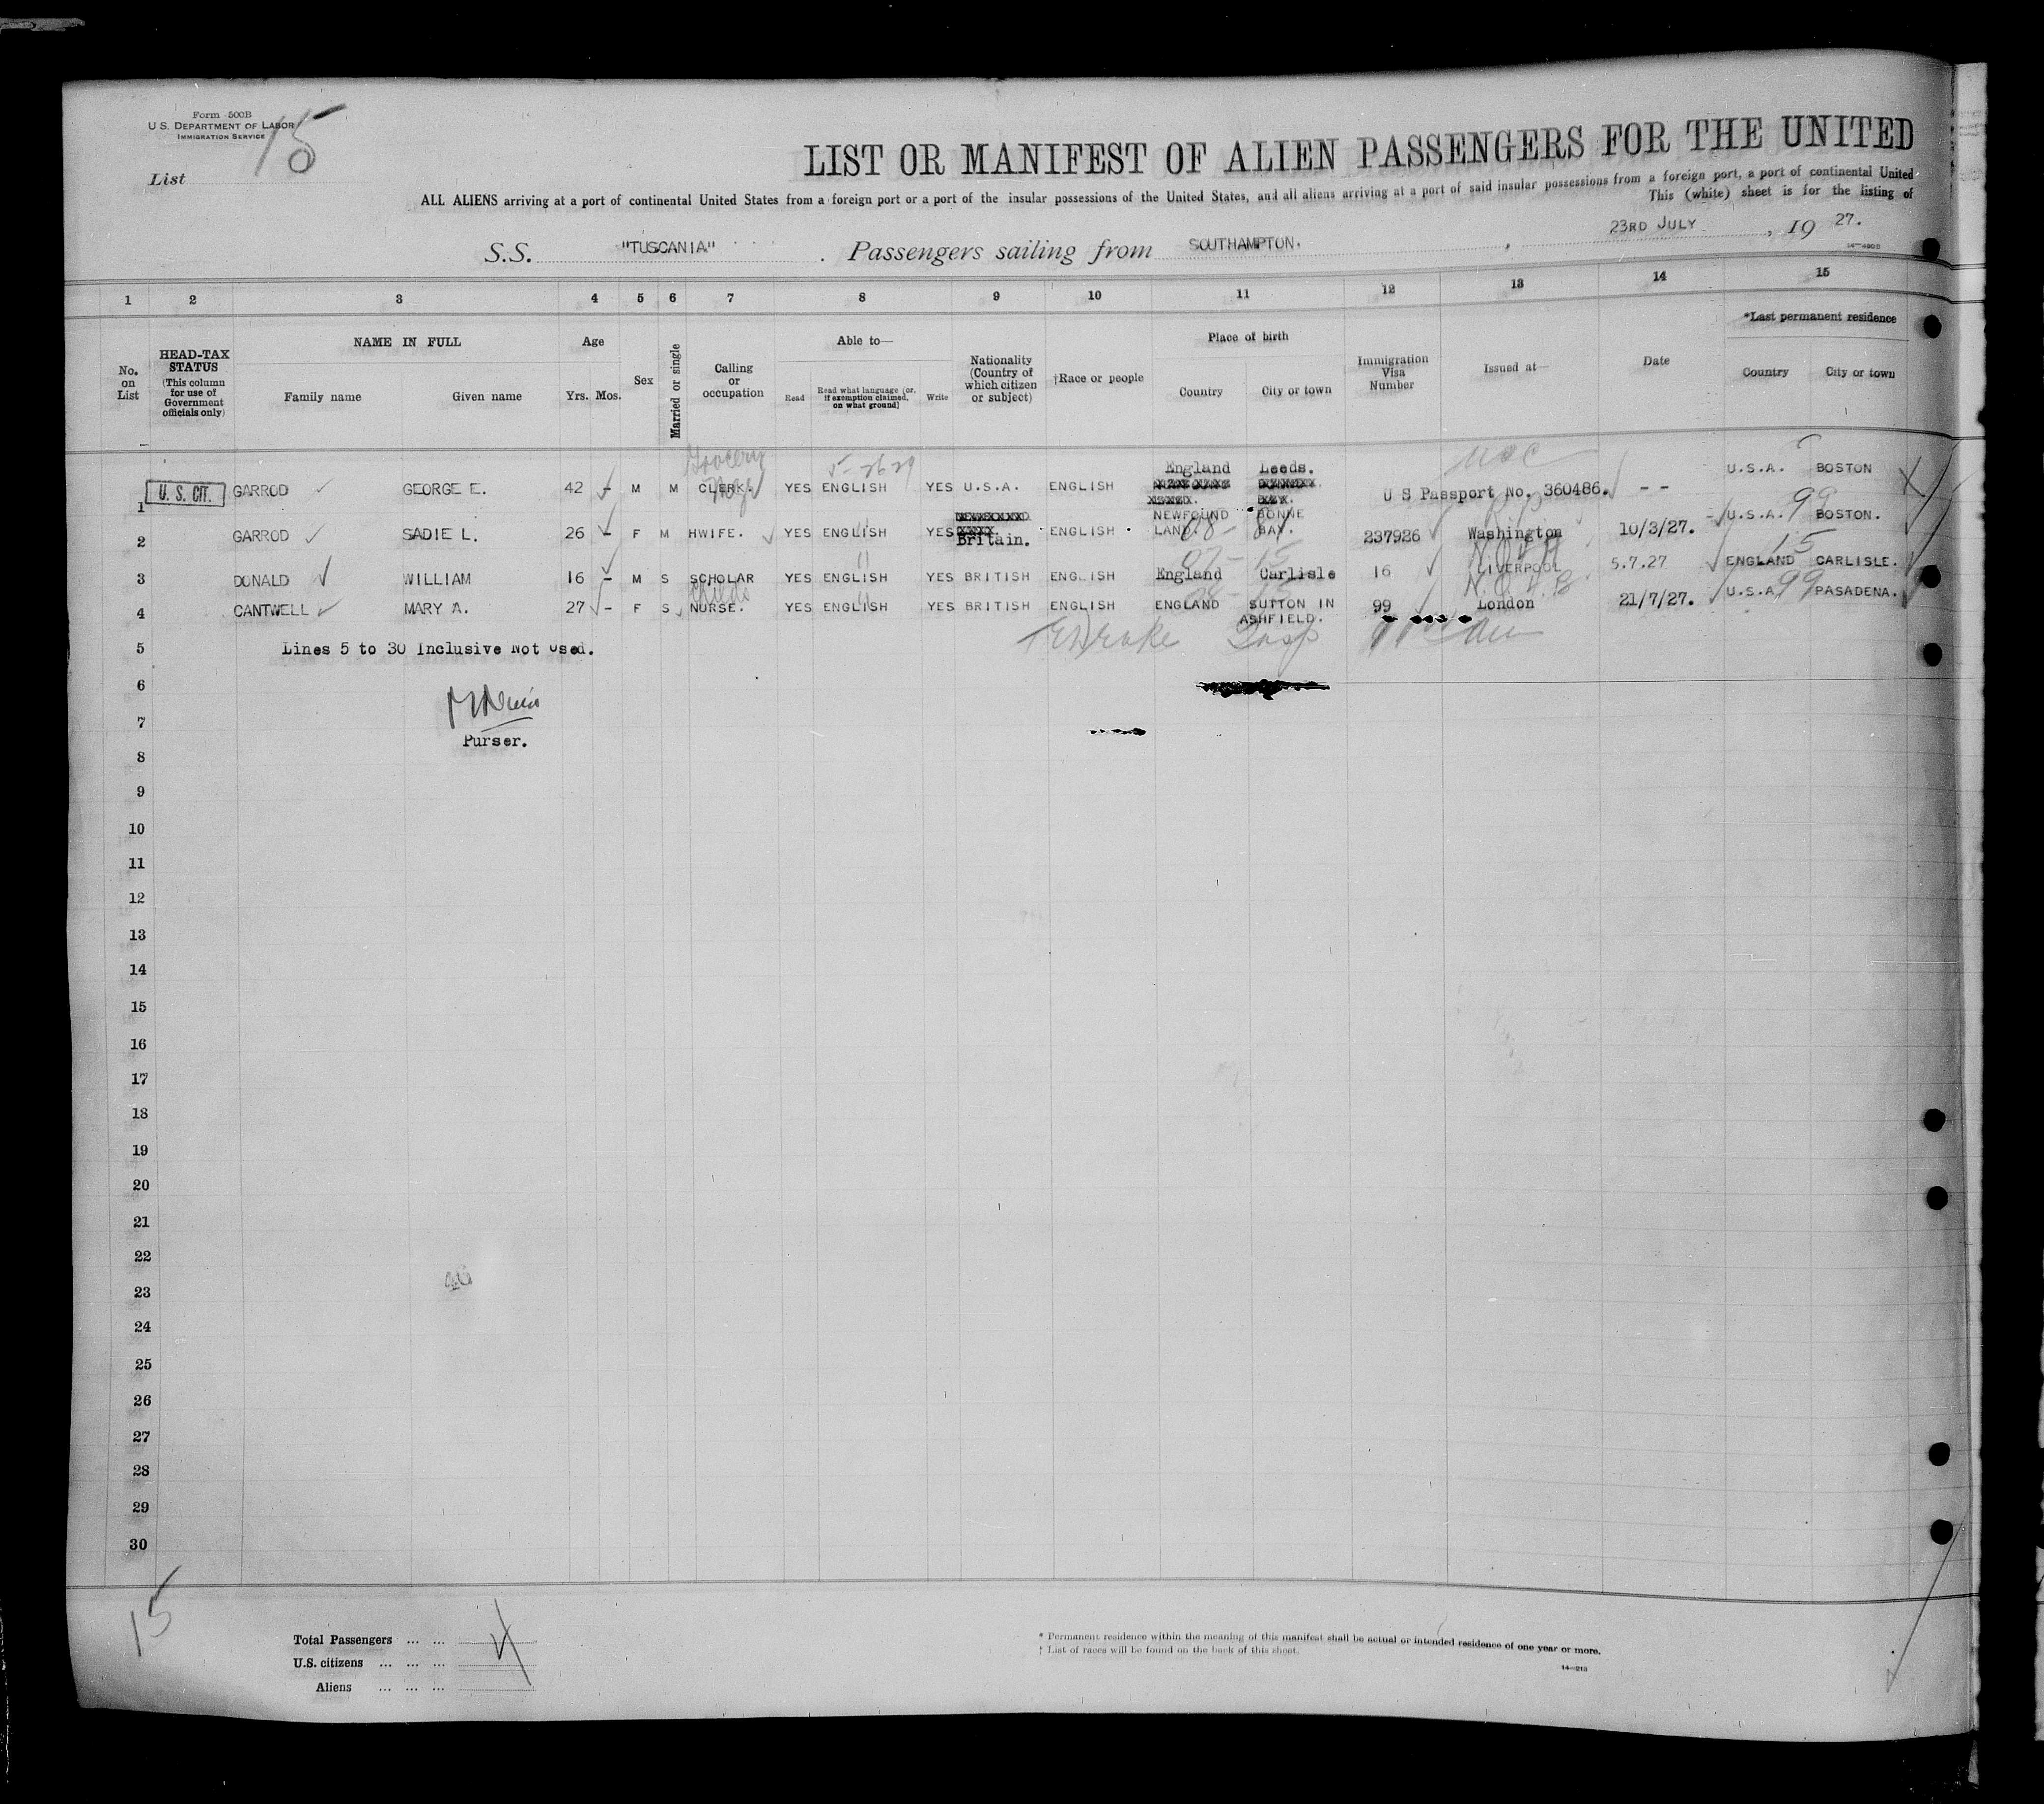 Form 500B
U.S. DEPARTMENT OF LABOR
IMMIGRATION SERVICE
List 15
LIST OR MANIFEST OF ALIEN PASSENGERS FOR THE UNITED
ALL ALIENS arriving at a port of continental United States from a foreign port or a port of the insular possessions of the United States, and all aliens arriving at a port of said insular possessions from a foreign port, a port of continental United
This (white) sheet is for the listing of
S.S. "TUSCANIA" . Passengers sailing from SOUTHAMPTON. , 23RD JULY , 19 27.
14—480B
1 2 3 4 5 6 7 8 9 10 11 12 13 14 15
No. on List
HEAD-TAX STATUS (This column for use of Government officials only)
NAME IN FULL
Family name Given name
Age
Yrs. Mos.
Sex
Married or single
Calling or occupation
Able to—
Read Read what language (or, if exemption claimed, on what ground) Write
Nationality (Country of which citizen or subject)
†Race or people
Place of birth
Country City or town
Immigration Visa Number
Issued at—
Date
*Last permanent residence
Country City or town
Grocery 5-2629 England Leeds. USC
1 U. S. CIT. GARROD GEORGE E. 42 - M M CLERK. Mgr YES ENGLISH YES U.S.A. ENGLISH U S Passport No. 360486. - - U.S.A. BOSTON
2 GARROD SADIE L. 26 - F M HWIFE. YES ENGLISH YES Britain. ENGLISH NEWFOUND LAND. BONNE BAY. 237926 Washington 10/3/27. - U.S.A. 99 BOSTON.
3 DONALD WILLIAM 16 - M S SCHOLAR YES ENGLISH YES BRITISH ENGLISH England Carlisle 16 LIVERPOOL 5.7.27 ENGLAND 15 CARLISLE.
4 CANTWELL MARY A. 27 - F S Childs NURSE. YES ENGLISH YES BRITISH ENGLISH ENGLAND SUTTON IN ASHFIELD. 99 London 21/7/27. U.S.A. 99 PASADENA.
5 Lines 5 to 30 Inclusive Not Used. Drake Insp
6
7
Purser.
8
9
10
11
12
13
14
15
16
17
18
19
20
21
22
23
24
25
26
27
28
29
30
15
Total Passengers ... ... 4
U.S. citizens ... ... ...
Aliens ... ... ...
* Permanent residence within the meaning of this manifest shall be actual or intended residence of one year or more.
† List of races will be found on the back of this sheet.
14—213